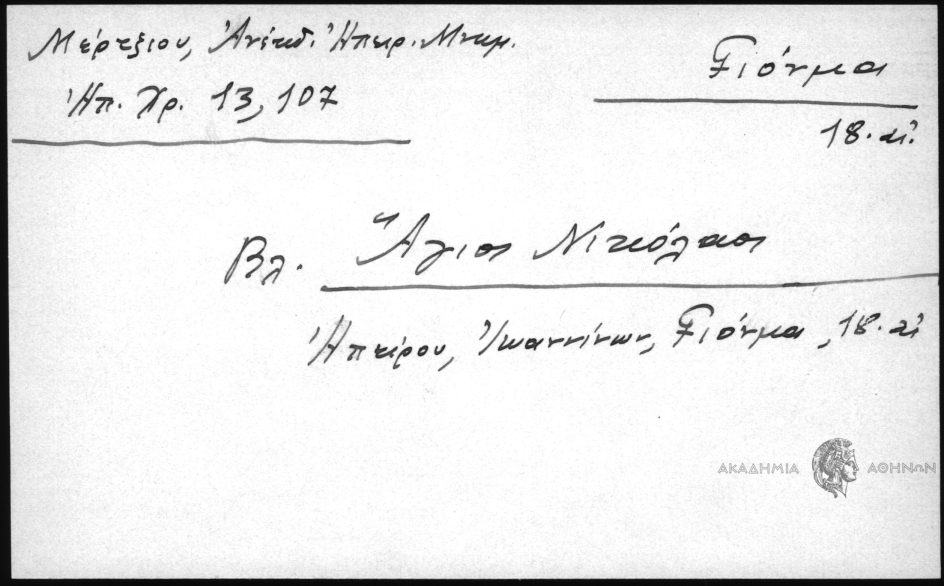 Μέρτζιου, Ἀνέκδ. Ἠπειρ. Μνημ.
Ἠπ. Χρ. 13, 107
Γιόνμα
18. αἰ.
Βλ. Ἅγιος Νικόλαος
Ἠπείρου, Ἰωαννίνων, Γιόνμα, 18. αἰ
ΑΚΑΔΗΜΙΑ ΑΘΗΝΩΝ